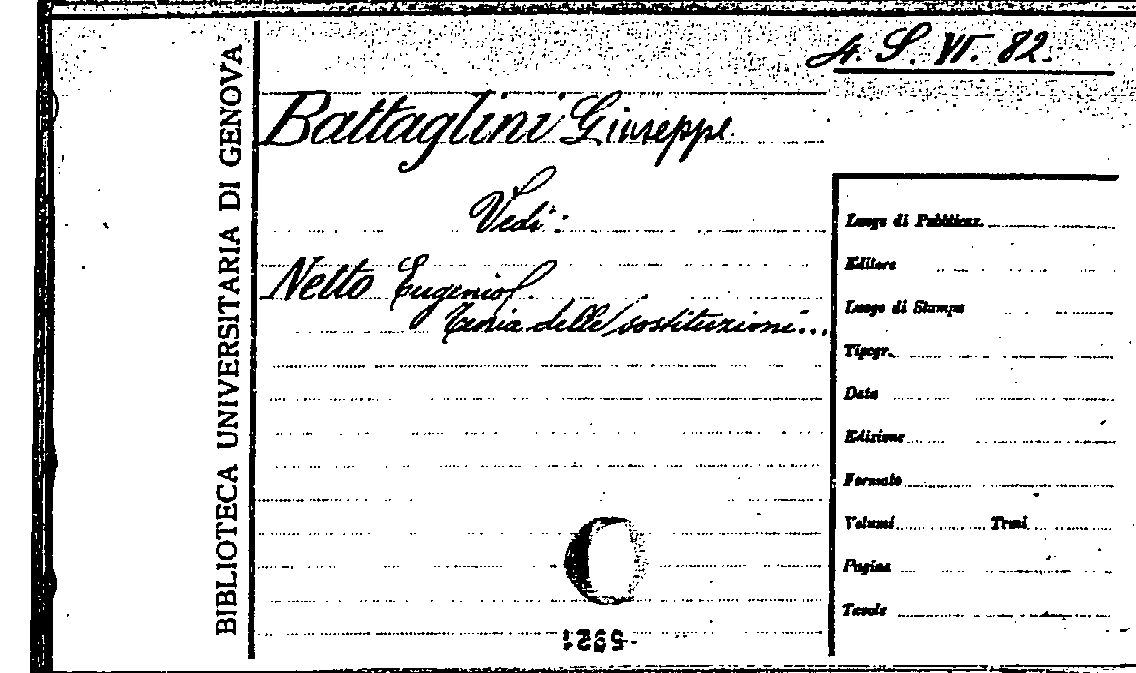 4. S. VI. 82.
BIBLIOTECA UNIVERSITARIA DI GENOVA
Battaglini Giuseppe
Vedi:
Netto Eugenio.
Teoria delle sostituzioni...
Luogo di Pubblicaz.
Editore
Luogo di Stampa
Tipogr.
Data
Edizione
Formato
Volumi Tomi
Pagine
Tavole